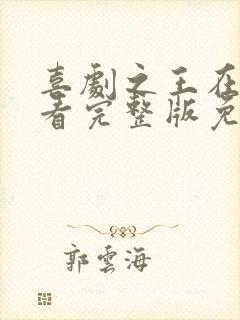 喜劇之王在
看完整版免
郭雲海